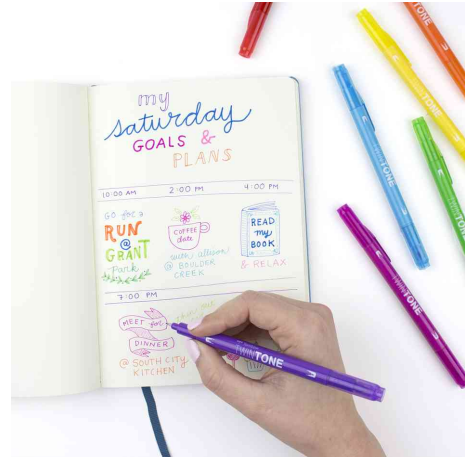 my
saturday
GOALS &
PLANS
10:00 AM
2:00 PM
4:00 PM
GO for a
RUN
@
GRANT
Park
COFFEE
date
with allison
@ BOULDER
CREEK
READ
my
BOOK
& RELAX
7:00 PM
MEET for
DINNER
@ SOUTH CITY
KITCHEN
TWINTONE
TWINTONE
TWINTONE
TWINTONE
TWINTONE
TWINTONE